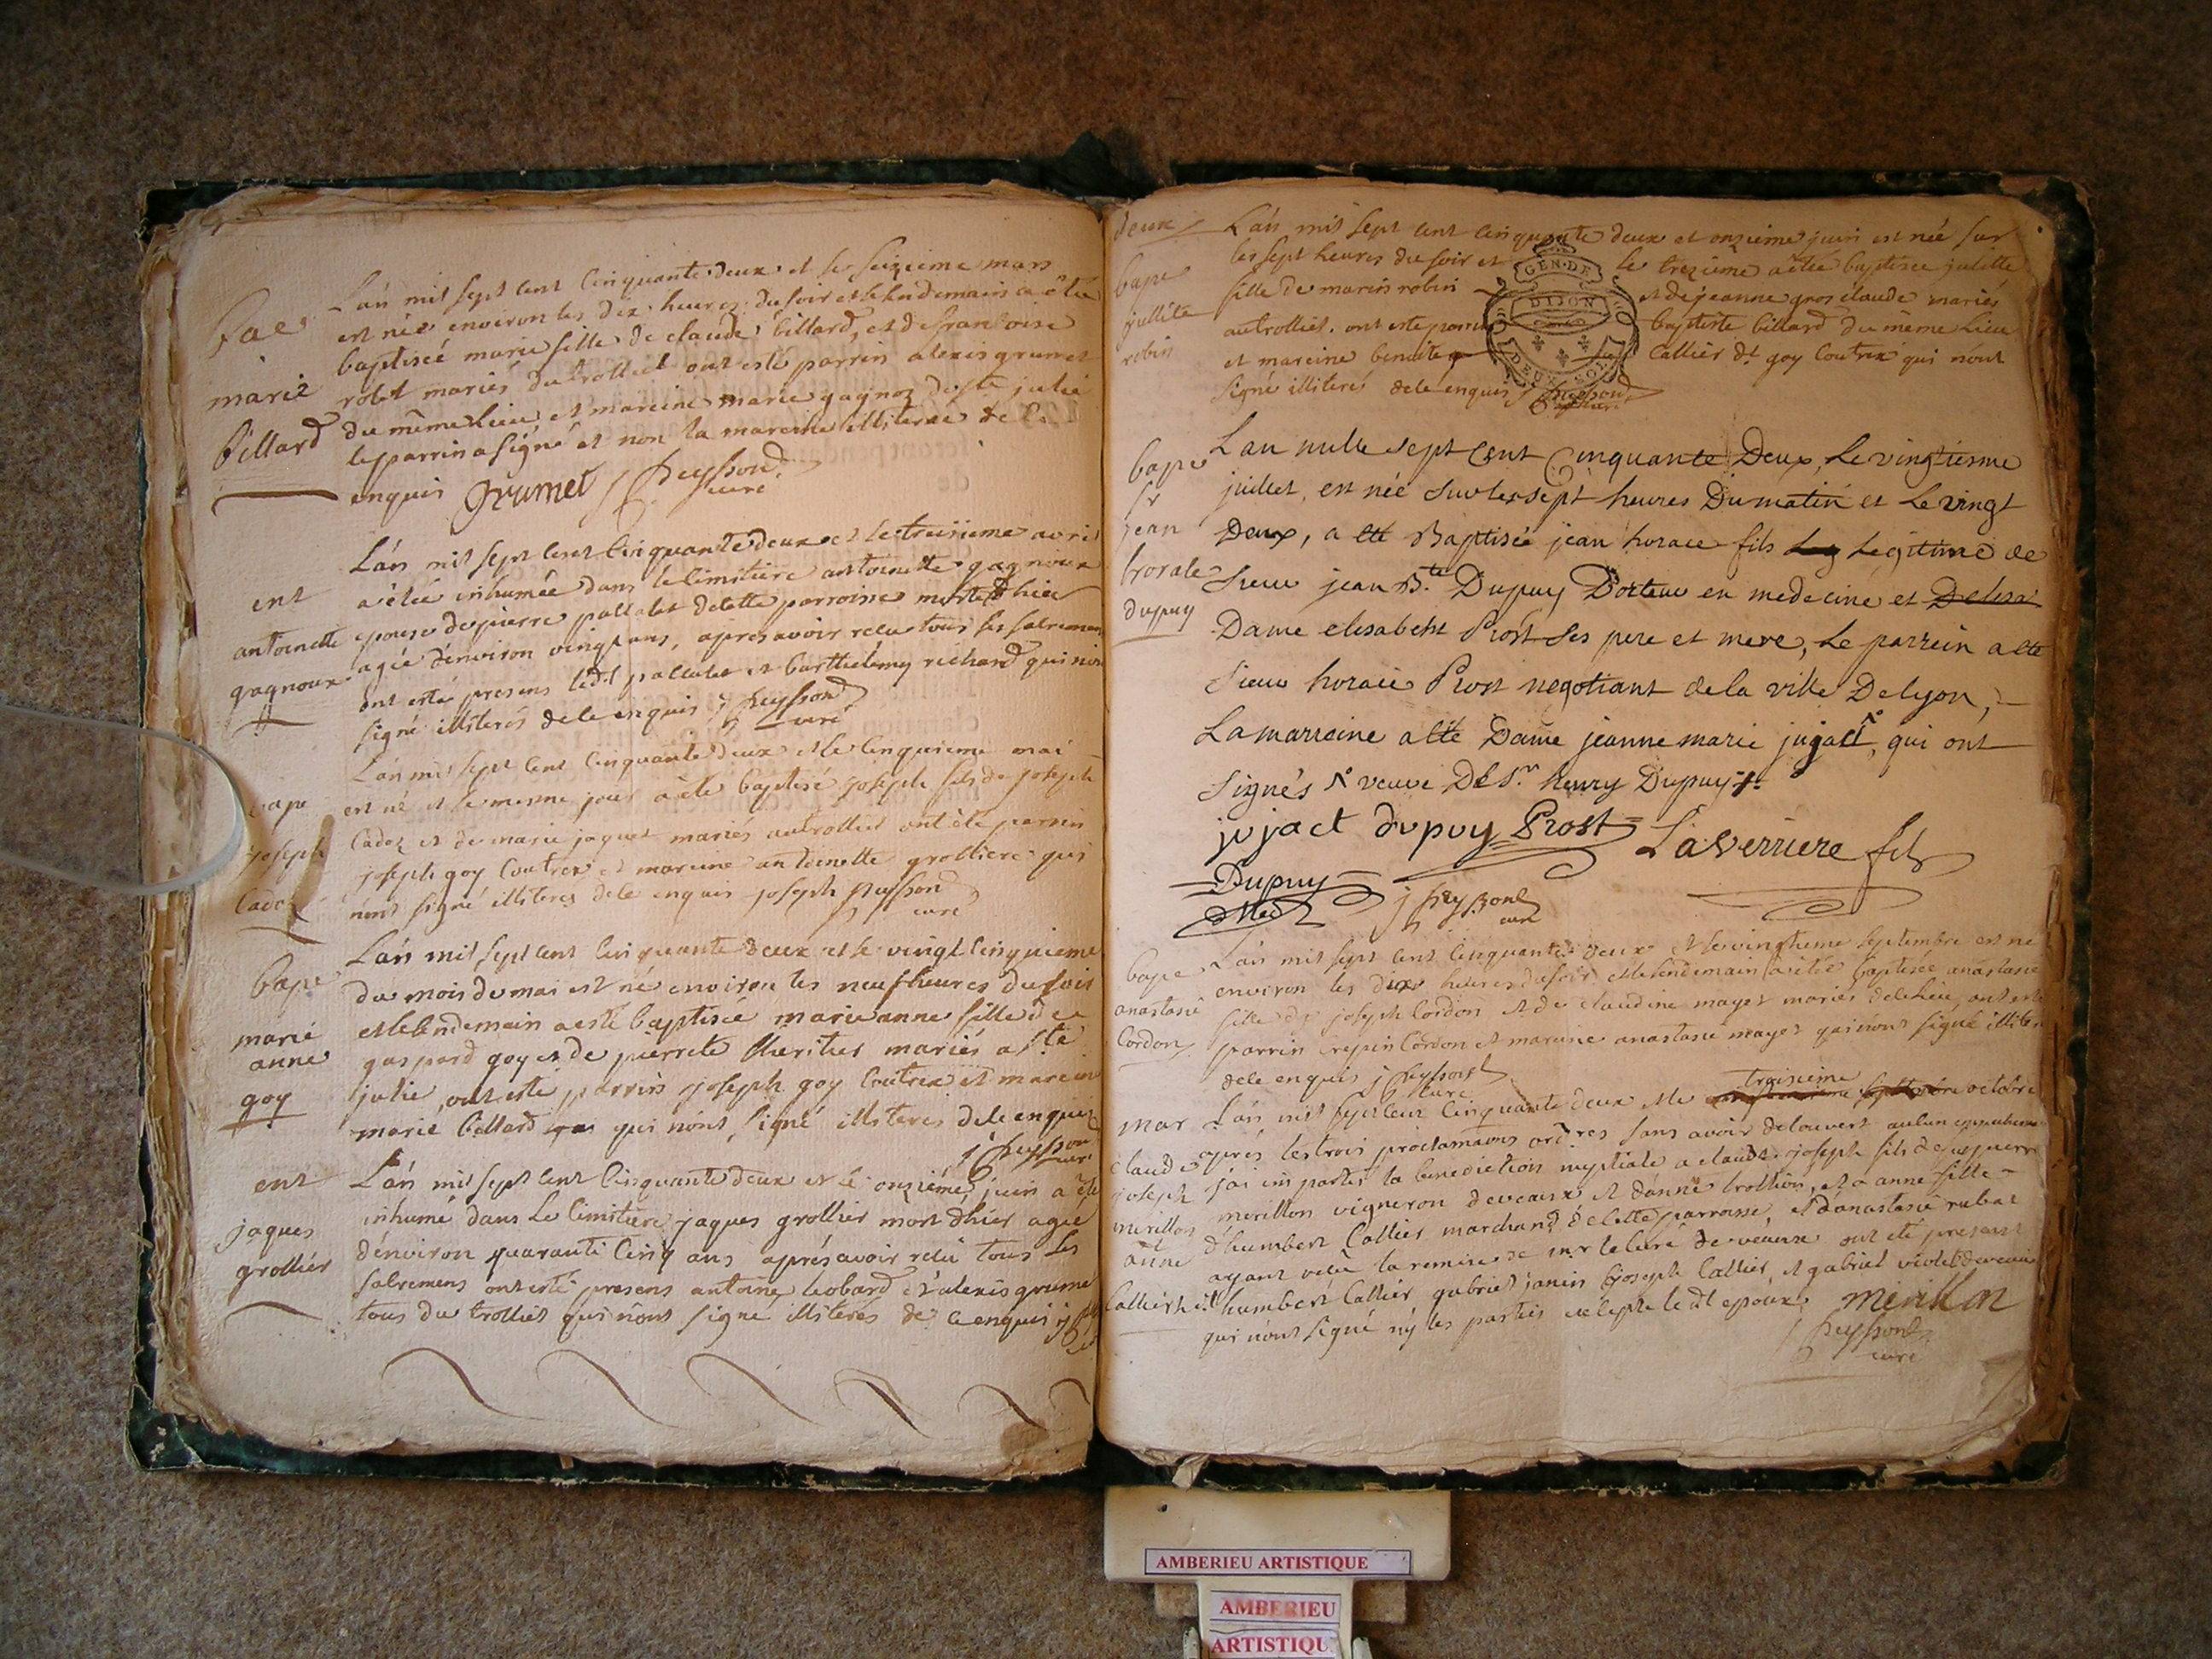 bap
marie
billard
L'an mil sept cent cinquante deux et le seizieme mars
est née environ les dix heures du soir et le lendemain a été
baptiseé marie fille de claude billard, et de francoise
robet mariés du trolliet ont esté parrin alexis grumet
du même lieu, et mareine marie gagnoz de ste julie
le parrin a signé et non la mareine illiterée de ce
enquis Grumet j heysson
curé
ent
antoinette
gagnoux
L'an mil sept cent cinquante deux et le troisieme avril
a étée inhumée dans le cimitiere antoinette gagnoux
epouse de pierre pallalet de cette parroisse morte d'hier
agée d'environ vingt ans, apres avoir receu tous ses sacremens
ont esté presens led pallalet et barthelemy richard qui n'ont
signé illiterés de ce enquis j heysson
curé
bape
joseph
cadoz
L'an mil sept cent cinquante deux et le cinquieme mai
est né et le mesme jour a été baptisé joseph fils de joseph
cadoz et de marie jaquet mariés au trolliet ont été parrin
joseph goy coutrex et mareine antoinette grolliere qui
n'ont signé illiterés de ce enquis joseph heysson
curé
bape
marie
anne
goy
L'an mil sept cent cinquante deux et le vingt cinquieme
du mois de mai est né environ les neuf heures du soir
et le lendemain a esté baptiseé marie anne fille de
gaspard goy et de pierrete mariés a ste
julie, ont esté parrin joseph goy coutrex et mareine
marie billard qui n'ont signé illiterés de ce enquis
j heysson
curé
ent
jaques
grollier
L'an mil sept cent cinquante deux et le onzième juin a été
inhumé dans le cimitiere jaques grollier mort d'hier agé
d'environ quarante cinq ans aprés avoir receu tous les
sacremens ont esté presens antoine leobard et alexis grumet
tous du trolliet qui n'ont signé illiterés de ce enquis
deux
bape
jullite
robin
L'an mil sept cent cinquante deux et onzieme juin est née sur
les sept heures du soir et le trezieme a étée baptisee julitte
fille de marin robin et de jeanne gros claude mariés
au trolliet. ont esté parrin baptiste billard du même lieu
et mareine benoite callier dt goy coutrex qui n'ont
signé illiterés de ce enquis j heysson
curé
GEN. DE
DIJON
DEUX SOLS
bape
sr
jean
horace
dupuy
L'an mille sept cent Cinquante Deux, Le vingtiesme
juillet, est née sur les sept heures Du matin et Le vingt
Deux, a eté Baptisée jean horace fils Legitime de
Sieur jean Bte. Dupuy Docteur en medecine et
Dame elisabeht Prost ses pere et mere, Le parrein a eté
Sieur horace Prost negotiant de la ville De lyon,
La marreine a eté Dame jeanne marie jujact, qui ont
Signés veuve De Sr. henry Dupuy
jujact dupuy Prost Laverriere fils
Dupuy
dMed j heysson
curé
bape
anastasie
Cordon
L'an mil sept cent cinquante deux et le vingtieme septembre est né
environ les dix heures du soir et le lendemain a étée baptisée anastasie
fille de joseph Cordon et de claudine mayet mariés de ce lieu, ont esté
parrin crepin Cordon et mareine anastasie mayet qui n'ont signé illiterés
de ce enquis j heysson
curé
mar
claude
joseph
merillon
et
anne
Callier
L'an mil sept cent cinquante deux et le troisieme octobre
aprés les trois proclamations ordres sans avoir decouvert aucun empechemens
j'ai imparti la benediction nuptiale a claude joseph fils de
merillon vigneron de veaux et d'anne trollion, et a anne fille
d'humbert Callier marchand de cette parroisse, et d'anastasie rubat
ayant veu la remise de mr le curé de veaux ont eté presens
humbert Callier gabriel janin joseph Callier, et gabriel violet de veaux
qui n'ont signé ny les parties excepté le dt epoux. merillon
j heysson
curé
AMBERIEU ARTISTIQUE
AMBERIEU
ARTISTIQU